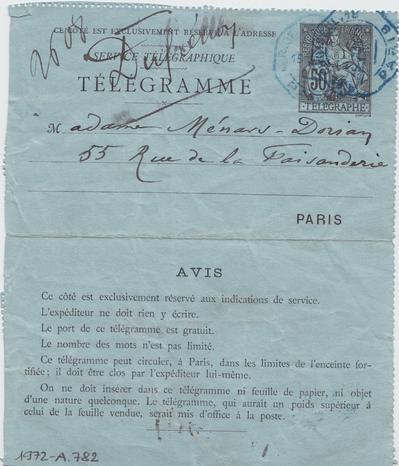 CE CÔTÉ EST EXCLUSIVEMENT RÉSERVÉ A L'ADRESSE
SERVICE TÉLÉGRAPHIQUE
TÉLÉGRAMME
50
TÉLÉGRAPHE
Madame Ménars-Dorian
55 Rue de la Faisanderie
PARIS
AVIS
Ce côté est exclusivement réservé aux indications de service.
L'expéditeur ne doit rien y écrire.
Le port de ce télégramme est gratuit.
Le nombre des mots n'est pas limité.
Ce télégramme peut circuler, à Paris, dans les limites de l'enceinte for-
tifiée; il doit être clos par l'expéditeur lui-même.
On ne doit insérer dans ce télégramme ni feuille de papier, ni objet
d'une nature quelconque. Le télégramme, qui aurait un poids supérieur à
celui de la feuille vendue, serait mis d'office à la poste.
1972-A.782